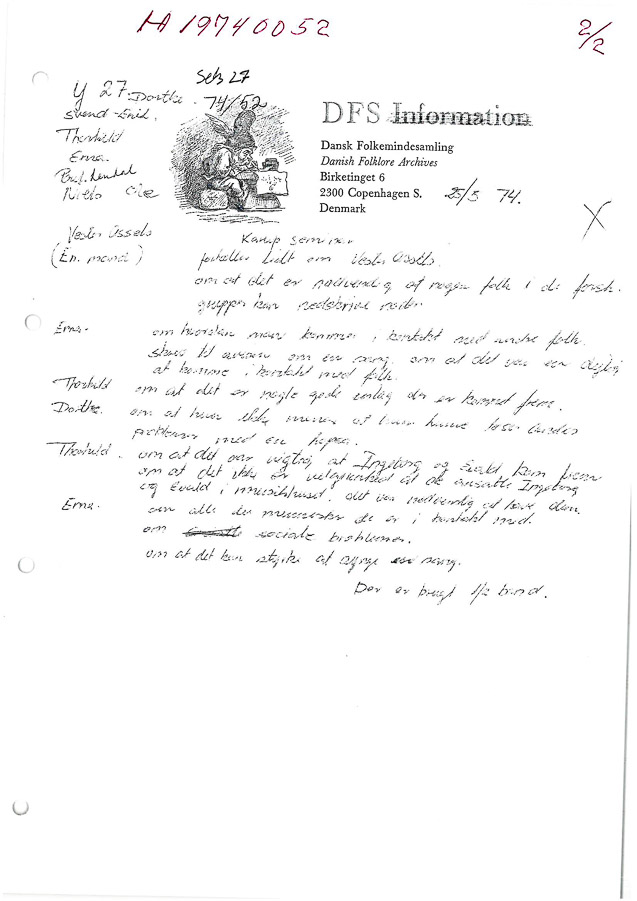 HA 19740052
2/2
Seb 27
Y 27 Dorthe. 74/52
Svend-Erik
Thorkild
Erna.
Niels
DFS Information
Dansk Folkemindesamling
Danish Folklore Archives
Birketinget 6
2300 Copenhagen S. 25/5 74.
Denmark
X
Vester Assels Karup seminar
(En. mand) fortæller lidt om Vester Assels
om at det er nødvendig at nogen folk i de forsk.
grupper kan nedskrive noder
Erna. om hvordan man kommer i kontakt med andre folk.
om en sang. om at det var en dejlig
at komme i kontakt med folk.
Thorkild om at det er nogle gode indlæg der er kommet frem.
Dorthe. om at hun ikke mener at kunne løse
problemer med en
Thorkild. om at det var vigtig at Ingeborg og Evald kom frem
om at det ikke er at de ansatte Ingeborg
og Evald i musikhuset. det var nødvendig at have dem.
Erna. om alle de mennesker de er i kontakt med.
om sociale problemer.
om at det kan styrke at synge en sang.
Der er brugt 1/2 bånd.